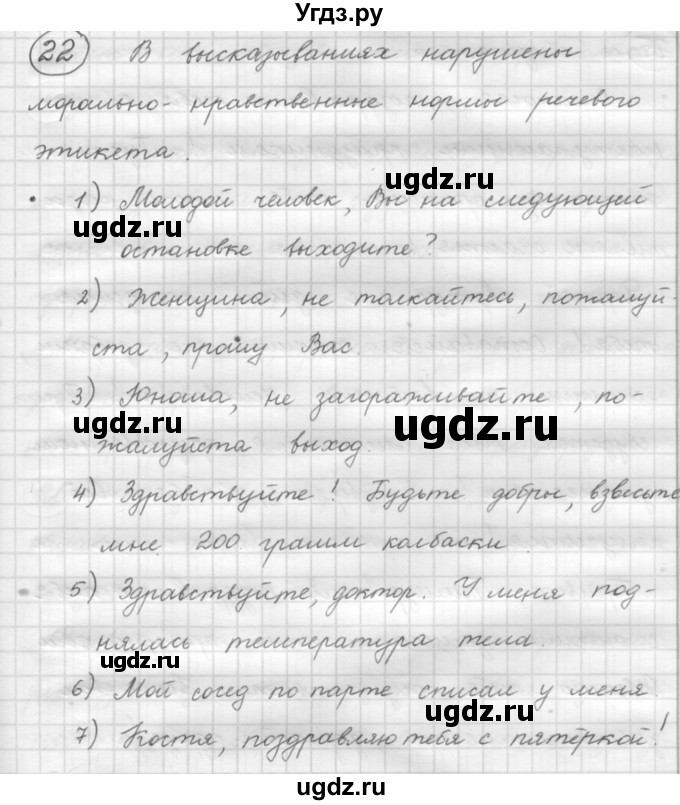 Угдз.ру
22 В высказываниях нарушены
морально- нравственные нормы речевого
этикета.
1) Молодой человек, Вы на следующей
ugdz.ru
ugdz.ru
остановке выходите?
2) Женщина, не толкайтесь, пожалуй-
ста, прошу Вас.
3) Юноша, не загораживайте, по-
ugdz.ru
ugdz.ru
жалуйста выход.
4) Здравствуйте! Будьте добры, взвесьте
мне 200 грамм колбаски
5) Здравствуйте, доктор. У меня под-
нялась температура тела.
ugdz.ru
6) Мой сосед по парте списал у меня.
ugdz.ru
7) Костя, поздравляю тебя с пятёркой!
ugdz.ru